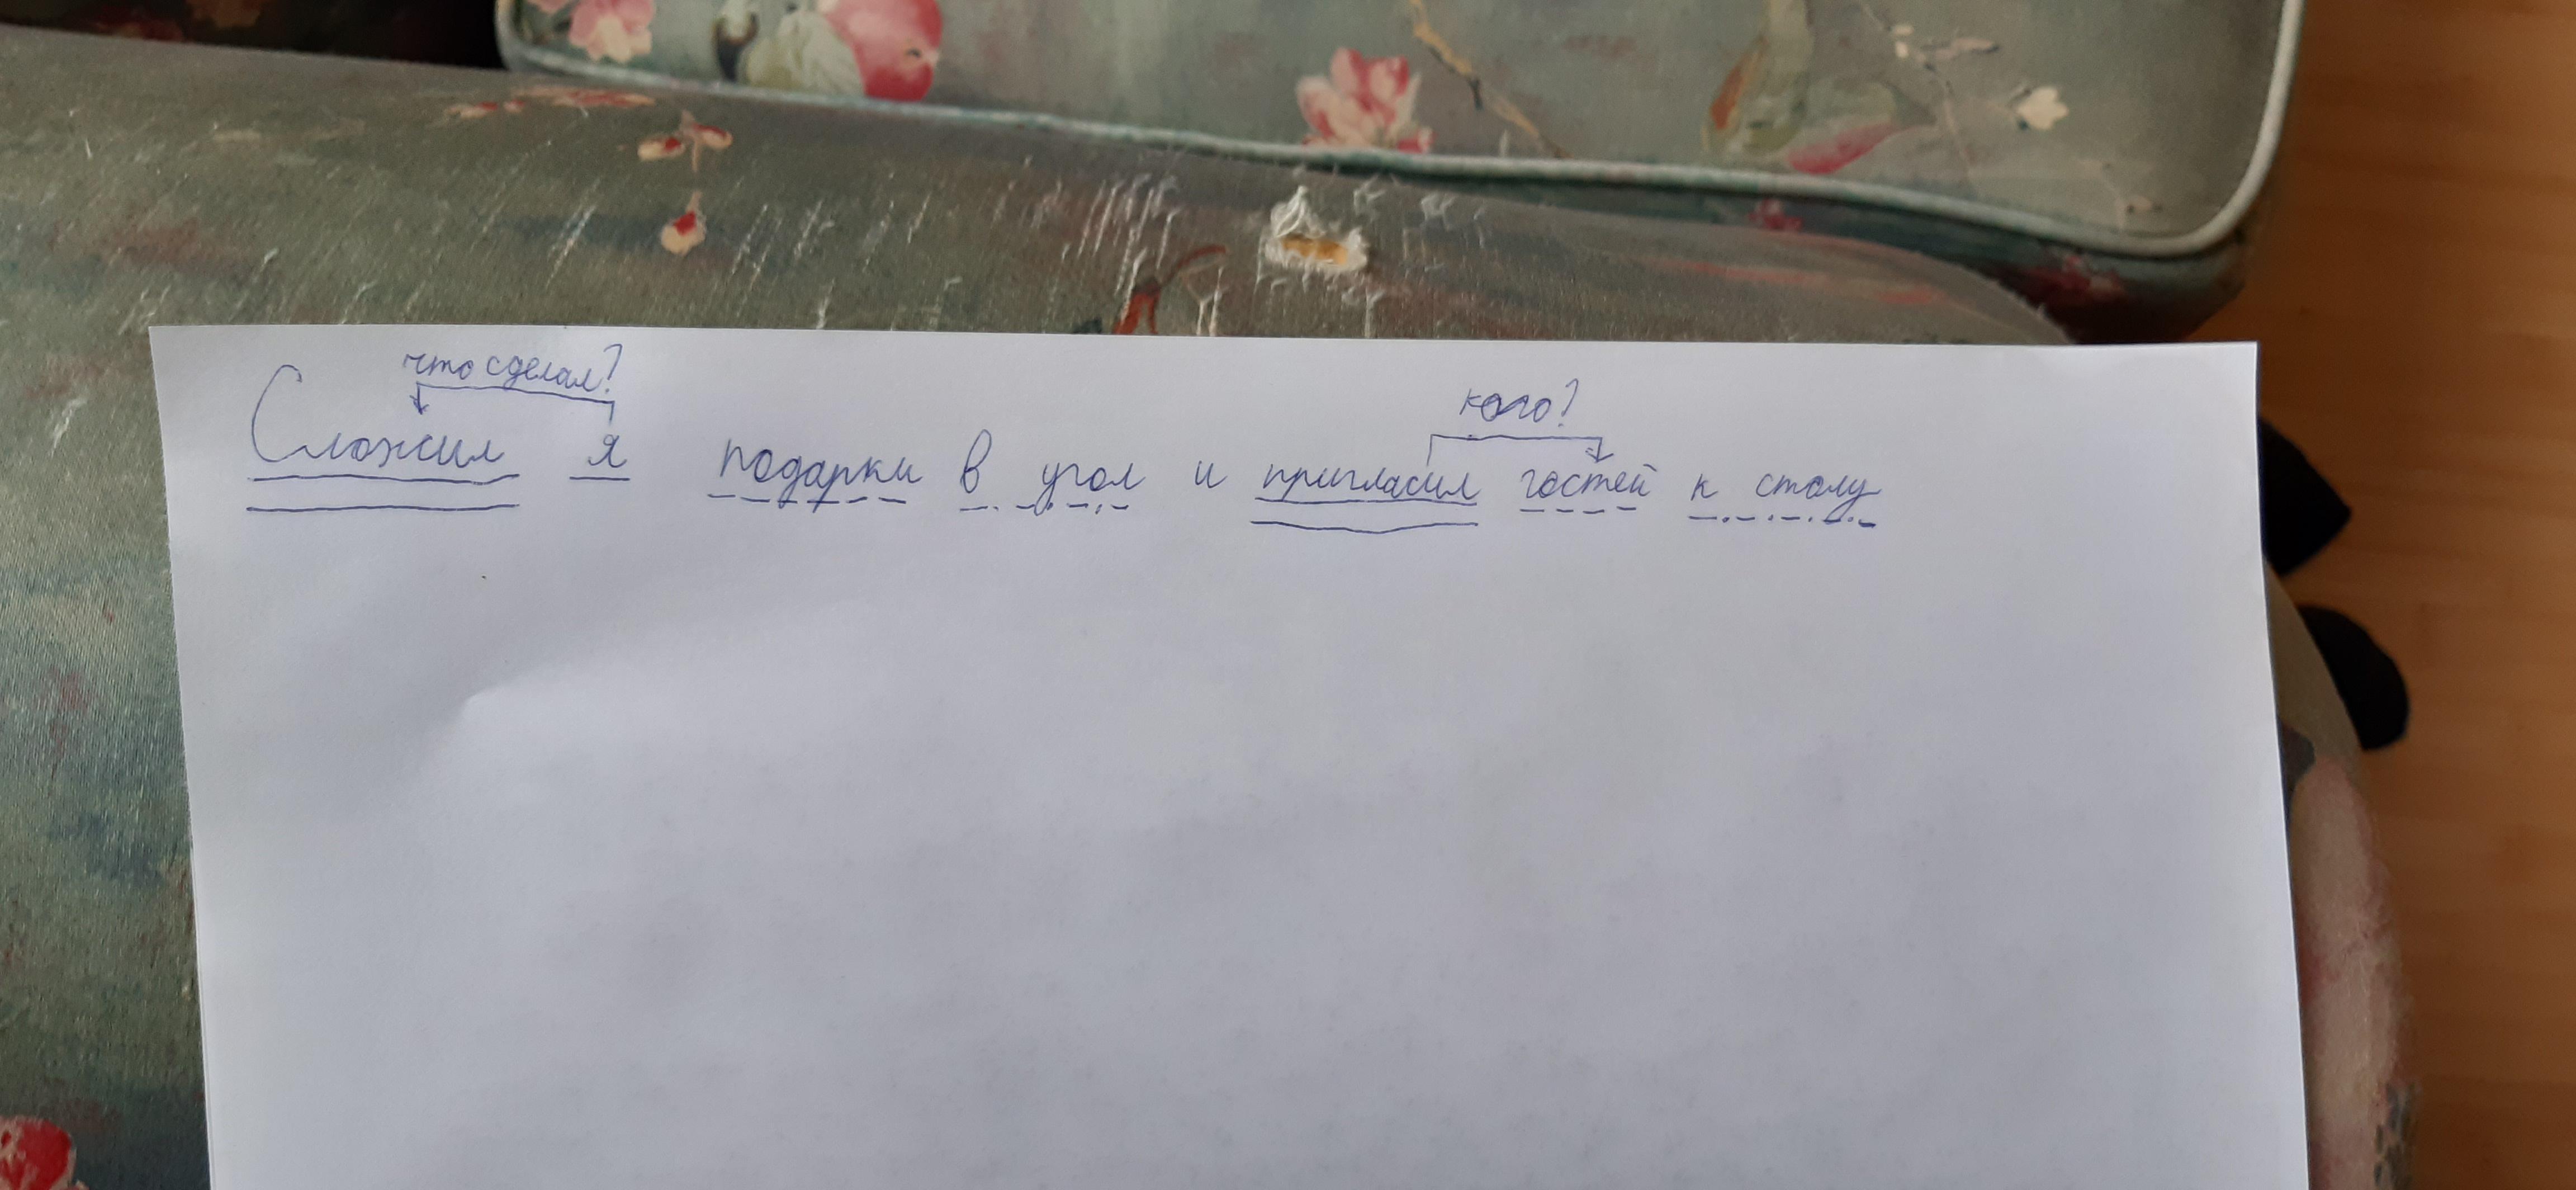 что сделал?
кого?
Сложил я подарки в угол и пригласил гостей к столу